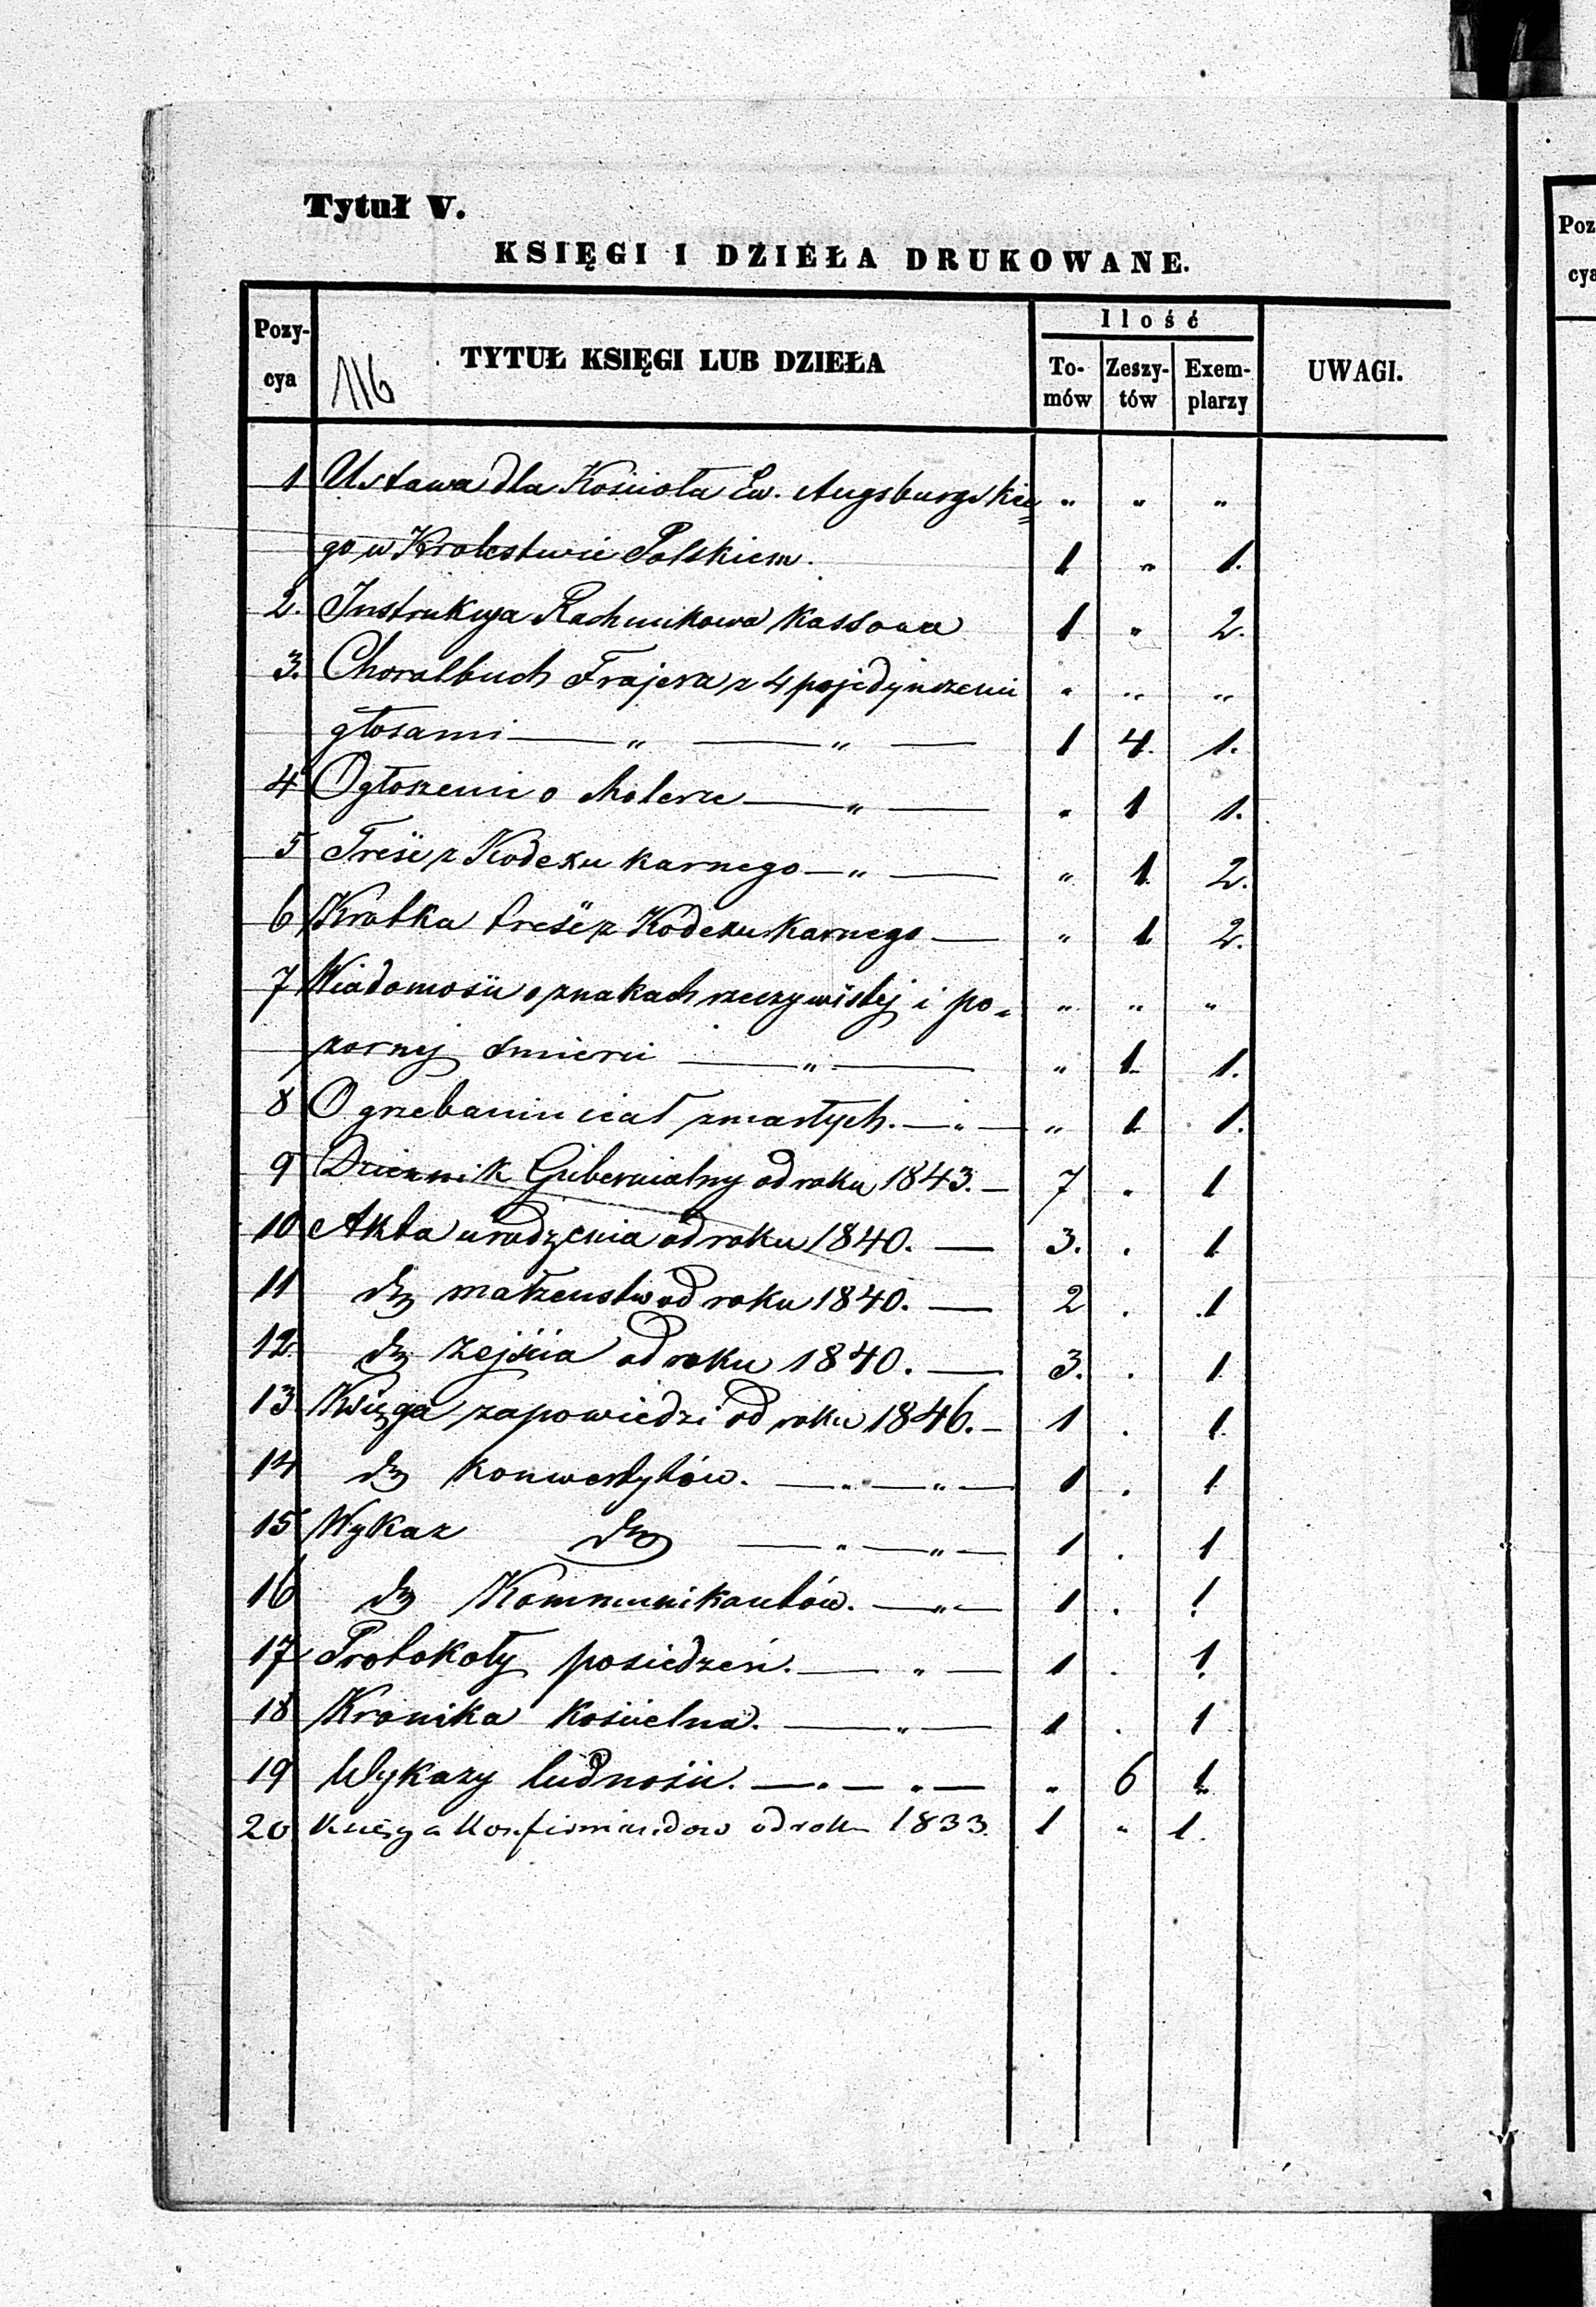 Tytuł V.
KSIĘGI I DZIEŁA DRUKOWANE.
Pozycya | TYTUŁ KSIĘGI LUB DZIEŁA | Ilość | UWAGI.
116
Tomów | Zeszytów | Exemplarzy
1 Ustawa dla Kościoła Ew. Augsburgskie= " " "
go w Krolestwie Polskiem. 1 " 1.
2. Instrukcya Rachunkowa Kassowa 1 " 2.
3. Choralbuch Frajera z 4 pojedynczemi " " "
głosami — " — " — 1 4. 1.
4 Ogłoszenie o Cholerze — " — " 1 1.
5 Treść z Kodexu karnego — " — " 1. 2.
6 Krotka treść z Kodexu Karnego — " 1 2.
7 Wiadomości o znakach rzeczywistej i po= " " "
zornej śmierci — " — " 1. 1.
8 O grzebaniu ciał zmarłych. — " — " 1 1.
9 Dziennik Gubernialny od roku 1843. — 7 . 1
10 Akta urodzenia od roku 1840. — 3. . 1
11 dto małzenstw od roku 1840. — 2 . 1
12. dto Zejścia od roku 1840. — 3. . 1
13 Księga zapowiedzi od roku 1846. — 1 . 1
14 dto Konwertytów. — " — " — 1 . 1
15 Wykaz dto — " — " — 1 . 1
16 dto Kommunikantów. — " — 1 . 1
17 Protokoły posiedzeń. — " — 1 . 1
18 Kronika Kościelna. — " — 1 . 1
19 Wykazy ludności. — " — " — " 6 1
20 Księga Konfirmandow od roku 1833. 1 " 1.
Pozycya